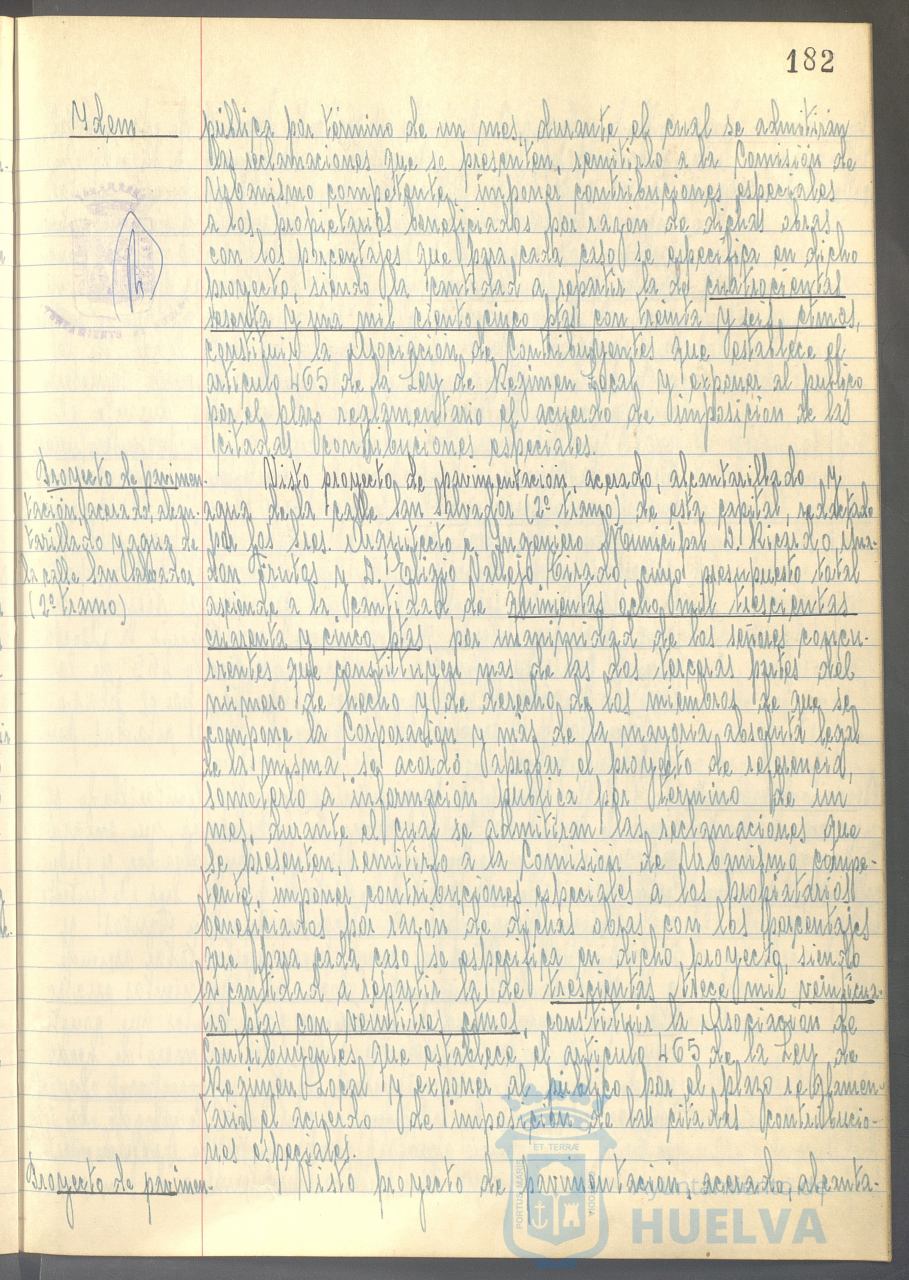 182
Ydem
pública por término de un mes, durante el cual se admitirán
las reclamaciones que se presenten, remitirlo a la Comisión de
Urbanismo competente, imponer contribuciones especiales
a los propietarios beneficiados por razón de dichas obras
con los porcentajes que para cada caso se especifica en dicho
proyecto, siendo la cantidad a repartir la de cuatrocientas
sesenta y una mil ciento cinco ptas con treinta y seis ctmos,
constituir la Asociación de Contribuyentes que establece el
artículo 465 de la Ley de Régimen Local y exponer al público
por el plazo reglamentario el acuerdo de imposición de las
citadas contribuciones especiales.
Proyecto de pavimen-
tación, acerado, alcan-
tarillado y agua de
la calle San Salvador
(2º tramo)
Visto proyecto de pavimentación, acerado, alcantarillado y
agua de la calle San Salvador (2º tramo) de esta capital, redactado
por los Sres. Arquitecto e Ingeniero Municipal D. Ricardo
y D. Eligio Vallejo Tirado, cuyo presupuesto total
asciende a la cantidad de quinientas ocho mil trescientas
cuarenta y cinco ptas, por unanimidad de los señores concu-
rrentes que constituyen mas de las dos terceras partes del
número de hecho y de derecho de los miembros de que se
compone la Corporación y más de la mayoria absoluta legal
de la misma, se acordó aprobar el proyecto de referencia,
someterlo a información pública por término de un
mes, durante el cual se admitiran las reclamaciones que
se presenten, remitirlo a la Comisión de Urbanismo compe-
tente, imponer contribuciones especiales a los propietarios
beneficiados por razón de dichas obras con los porcentajes
que para cada caso se especifica en dicho proyecto, siendo
la cantidad a repartir la de trescientas trece mil veinticua-
tro ptas con veintitres ctmos, constituir la Asociacion de
Contribuyentes que establece el artículo 465 de la Ley de
Régimen Local y exponer al público por el plazo reglamen-
tario el acuerdo de imposición de las citadas contribucio-
nes especiales.
Proyecto de pavimen-
Visto proyecto de pavimentación, acerado, alcanta-
ET TERRÆ
PORTUS MARIS
CUSTODIA
Ayuntamiento de
HUELVA